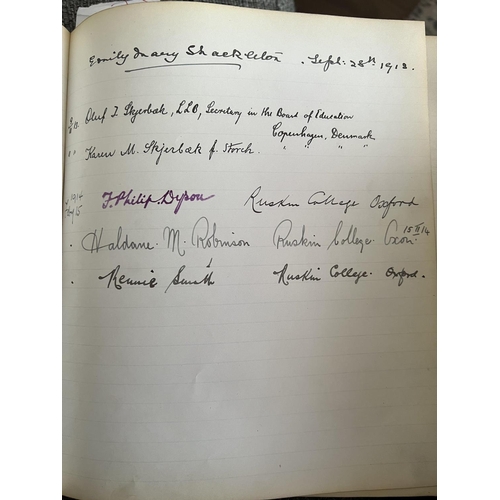 Emily Mary Shackleton . Sept: 28th 1912.
Oluf I. Skjerbæk, LLB, Secretary in the Board of Education
Copenhagen, Denmark
Karen M. Skjerbæk f. Storck. " " "
1914
J. Philip Dyson Ruskin College Oxford
Haldane. M. Robinson Ruskin College. Oxon. 15 14
Rennie Smith Ruskin College. Oxford.